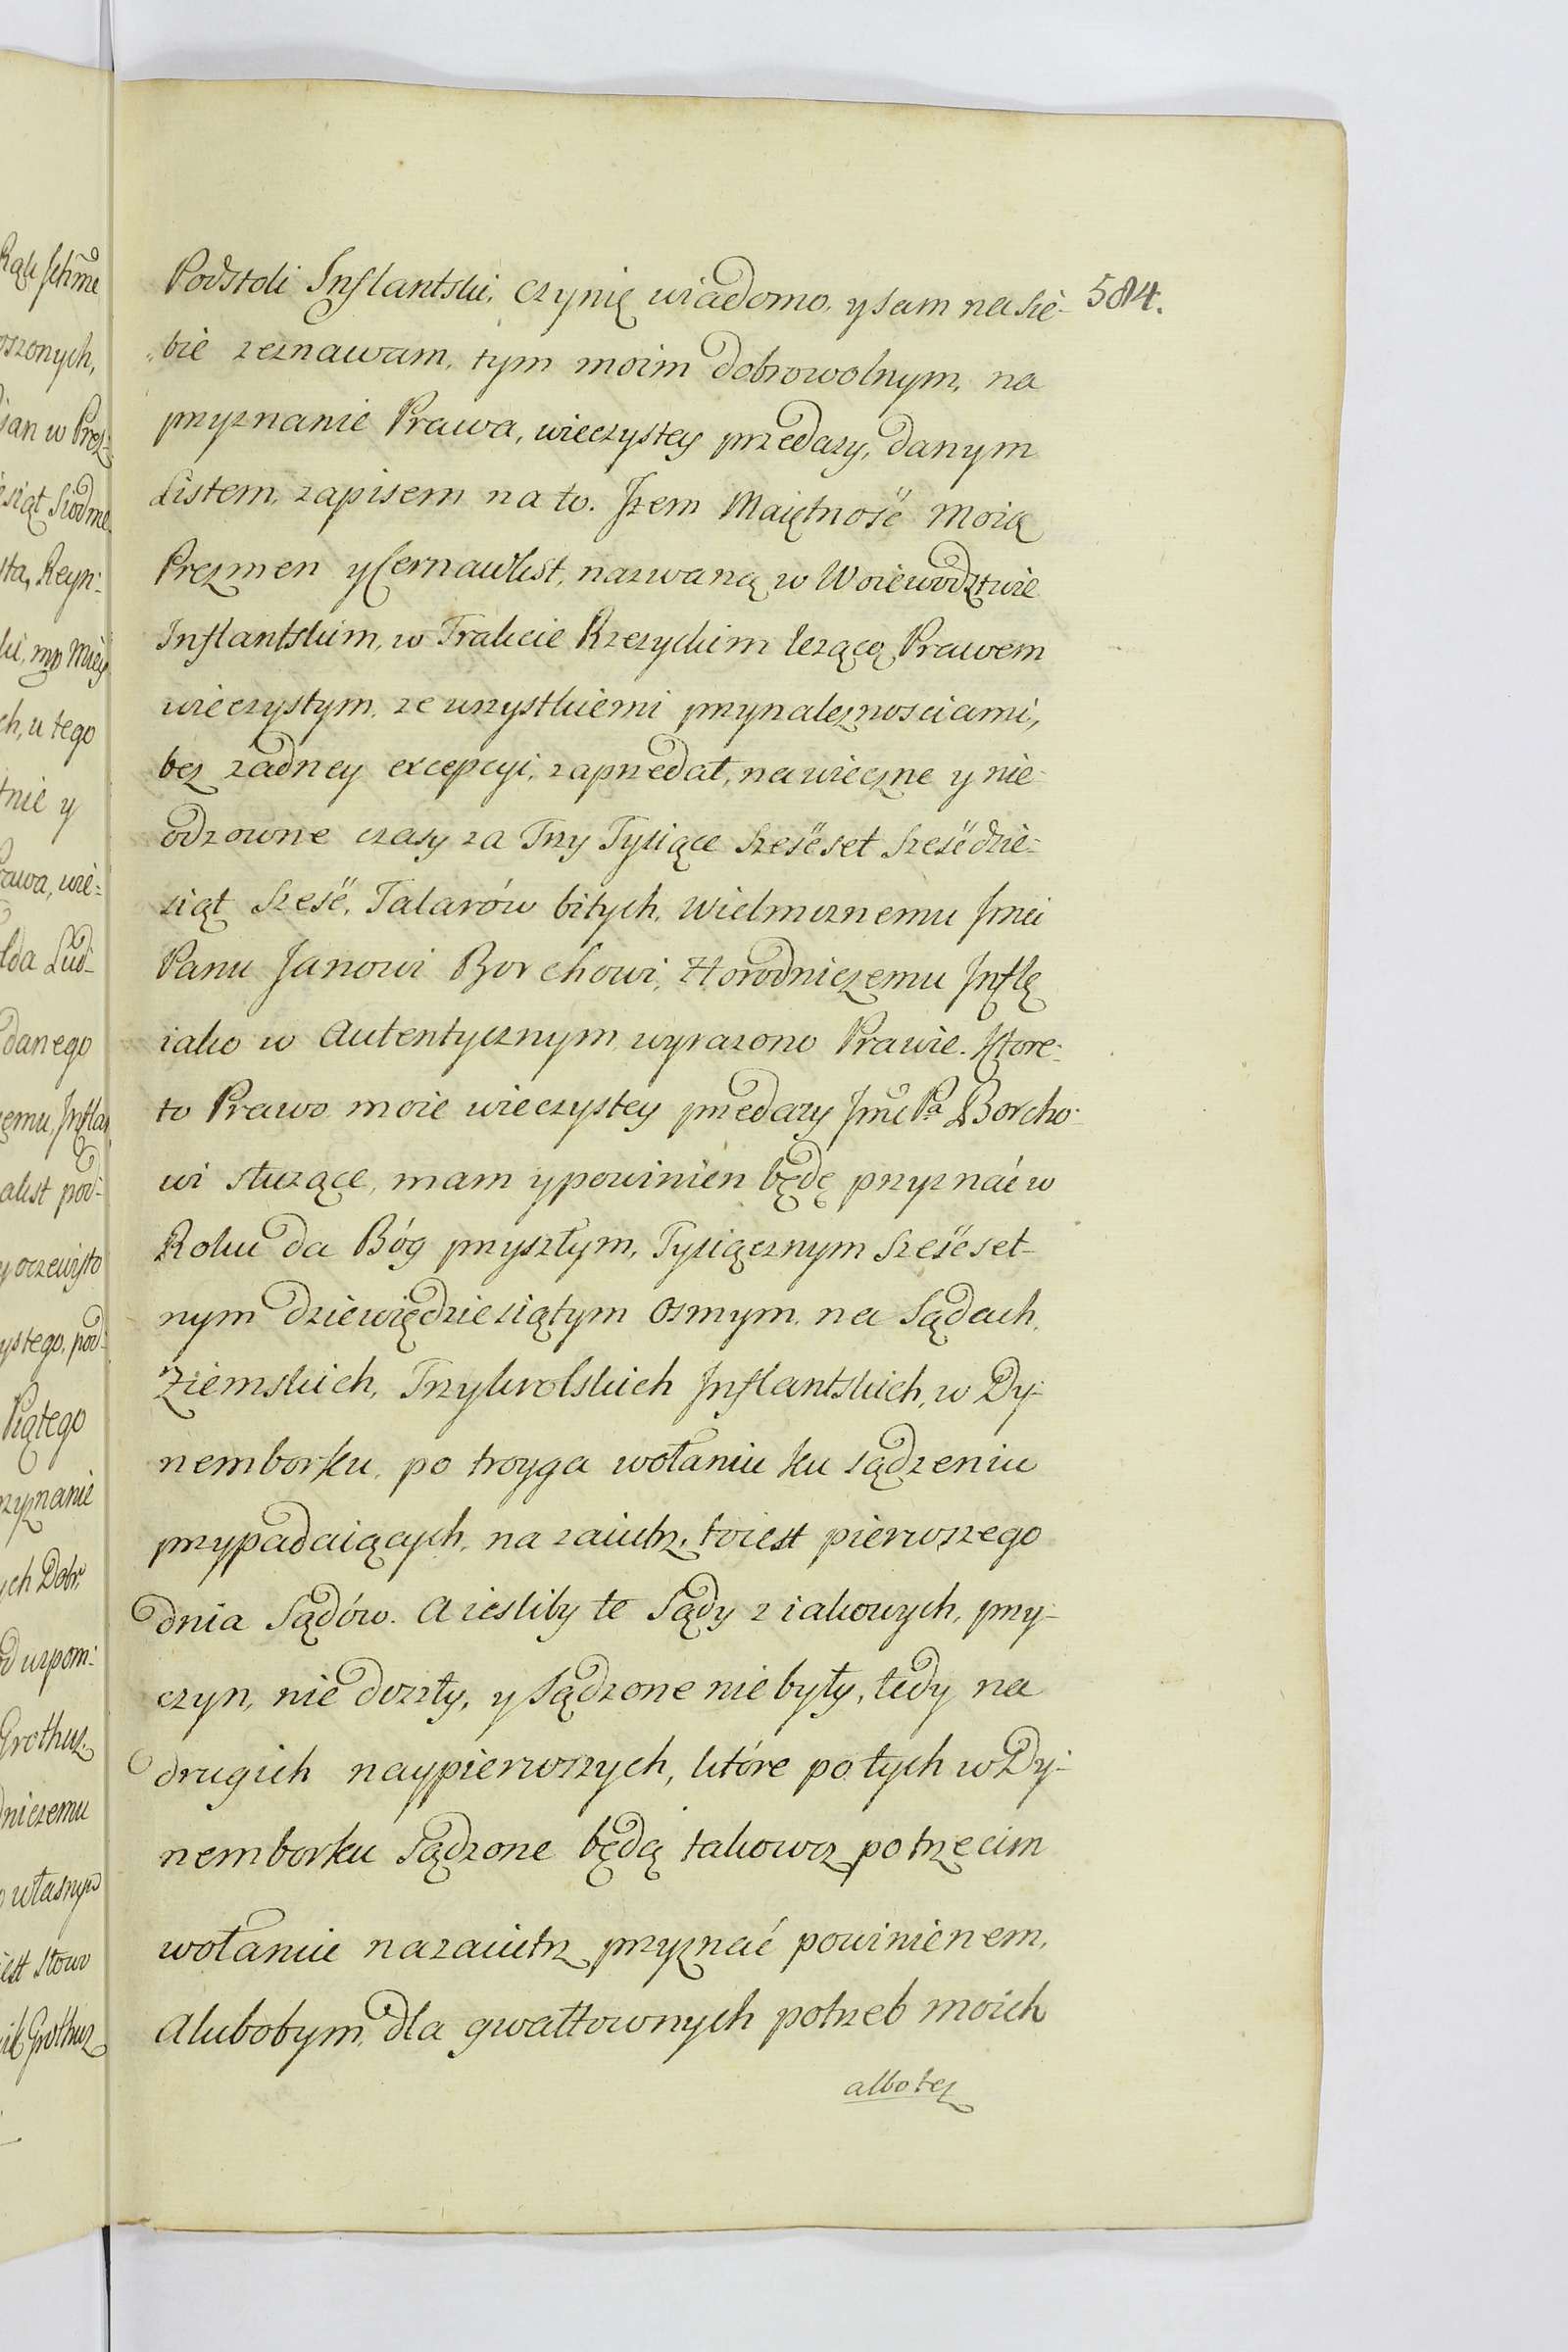 Podstoli Inflantski, czynię wiadomo, y sam na sie- 584.
bie zeznawam, tym moim dobrowolnym, na
przyznanie Prawa, wieczystey przedazy, danym
Listem, zapisem na to. Iżem Maiętność Moię
Prezmen y Cernawkst, nazwaną w Woiewodztwie
Inflantskim, w Trakcie Rzezyckim leżącą Prawem
wieczystym, ze wszystkiemi przynaleznosciami,
bez zadney excepcyi, zaprzedał, na wieczne y nie-
odzowne czasy za Trzy Tysiące Sześćset Sześćdzie-
siąt Sześć, Talarów bitych, Wielmoznemu Jmci
Panu Janowi Borchowi, Horodniczemu Inflą
iako w Autentycznym wyrazono Prawie. Ktore-
to Prawo moie wieczystey przedazy Jmc Pa Borcho-
wi służące, mam y powinien będę przyznać w
Roku da Bóg przyszłym, Tysiącznym Sześćset-
nym dziewiędziesiątym osmym, na Sądach,
Ziemskich, Trzykrolskich Inflantskich, w Dy-
nemborku, po troyga wołaniu ku sądzeniu
przypadaiących, na zaiutrz, toiest pierwszego
dnia Sądów. A iesliby te Sądy z iakowych, przy-
czyn, nie doszły, y Sądzone nie były, tedy na
drugich naypierwszych, które po tych w Dy-
nemborku Sądzone będą takowoz po trzecim
wołaniu nazaiutrz przyznać powinienem,
Alubobym, dla gwałtownych potrzeb moich
albo tez